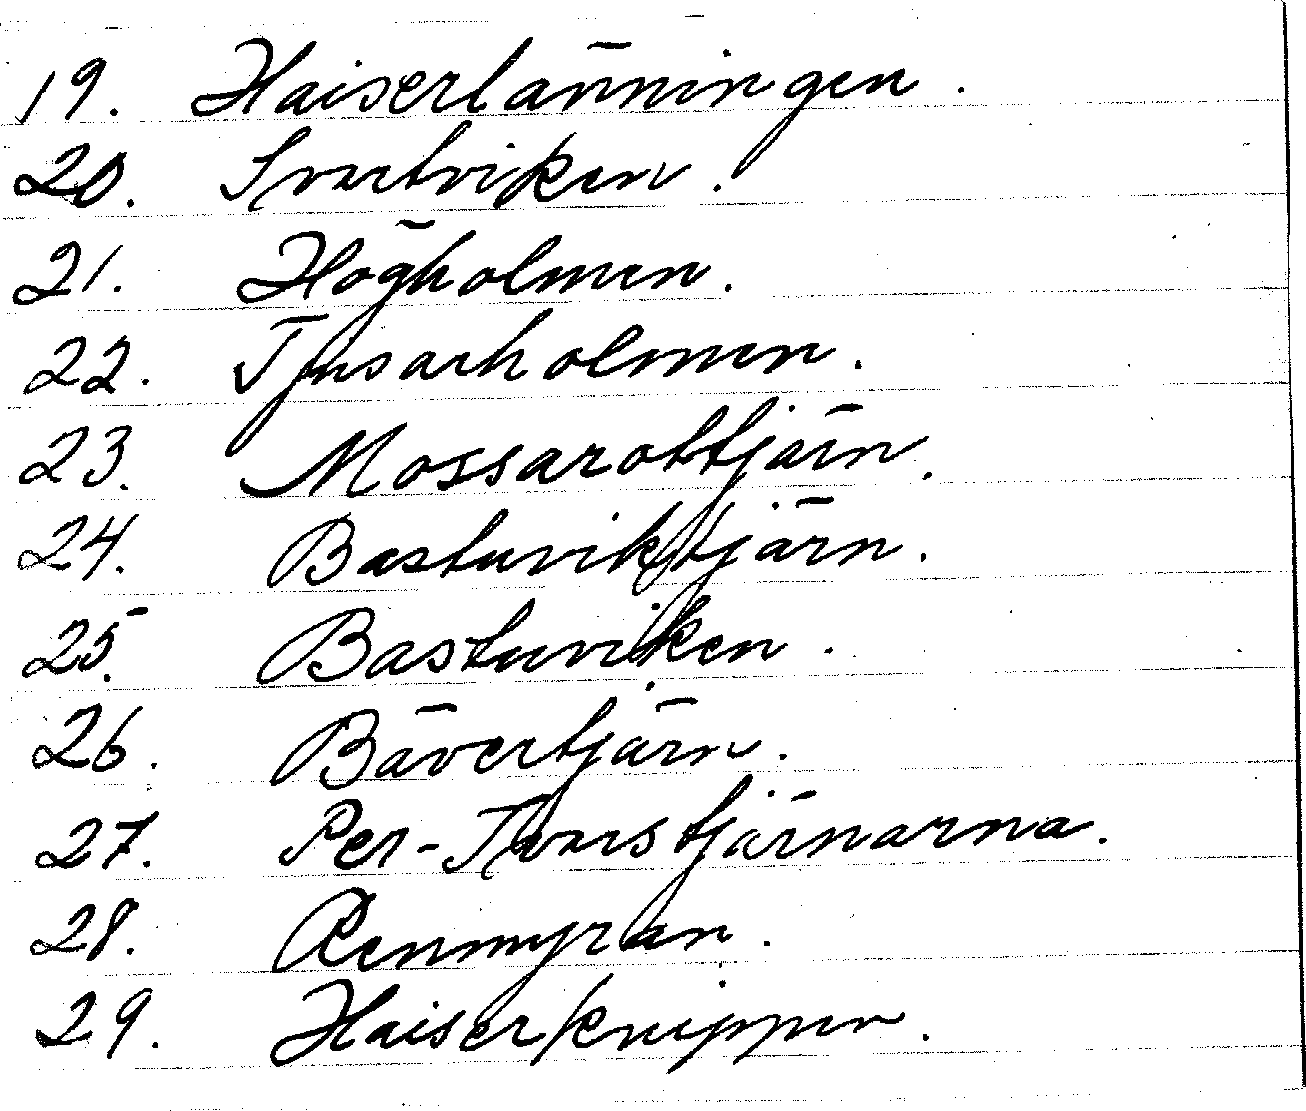 19. Haiserlänningen.
20. Svartviken.
21. Högholmen.
22. Tjusarholmen.
23. Mossarottjärn.
24. Bastuviktjärn.
25. Bastuviken.
26. Bävertjärn.
27. Per-Ivarstjärnarna.
28. Renmyran.
29. Haiserknippen.